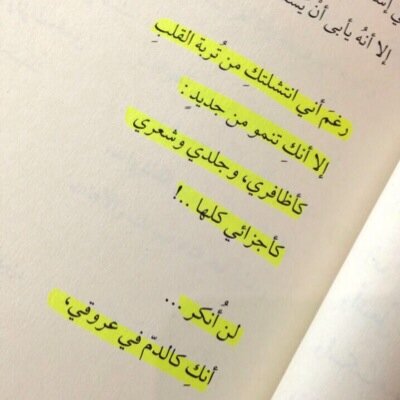 ي إنـ
إلا أنهُ يأبى أنْ يسـ
رغمَ أني انتشلتكِ من تُربة القلبِ
إلا أنكِ تنمو من جديدٍ :
كأظافري، وجلدي وشعري
كأجزائي كلها ..!
لن أُنكر ...
أنكِ كالدمّ في عروقي،